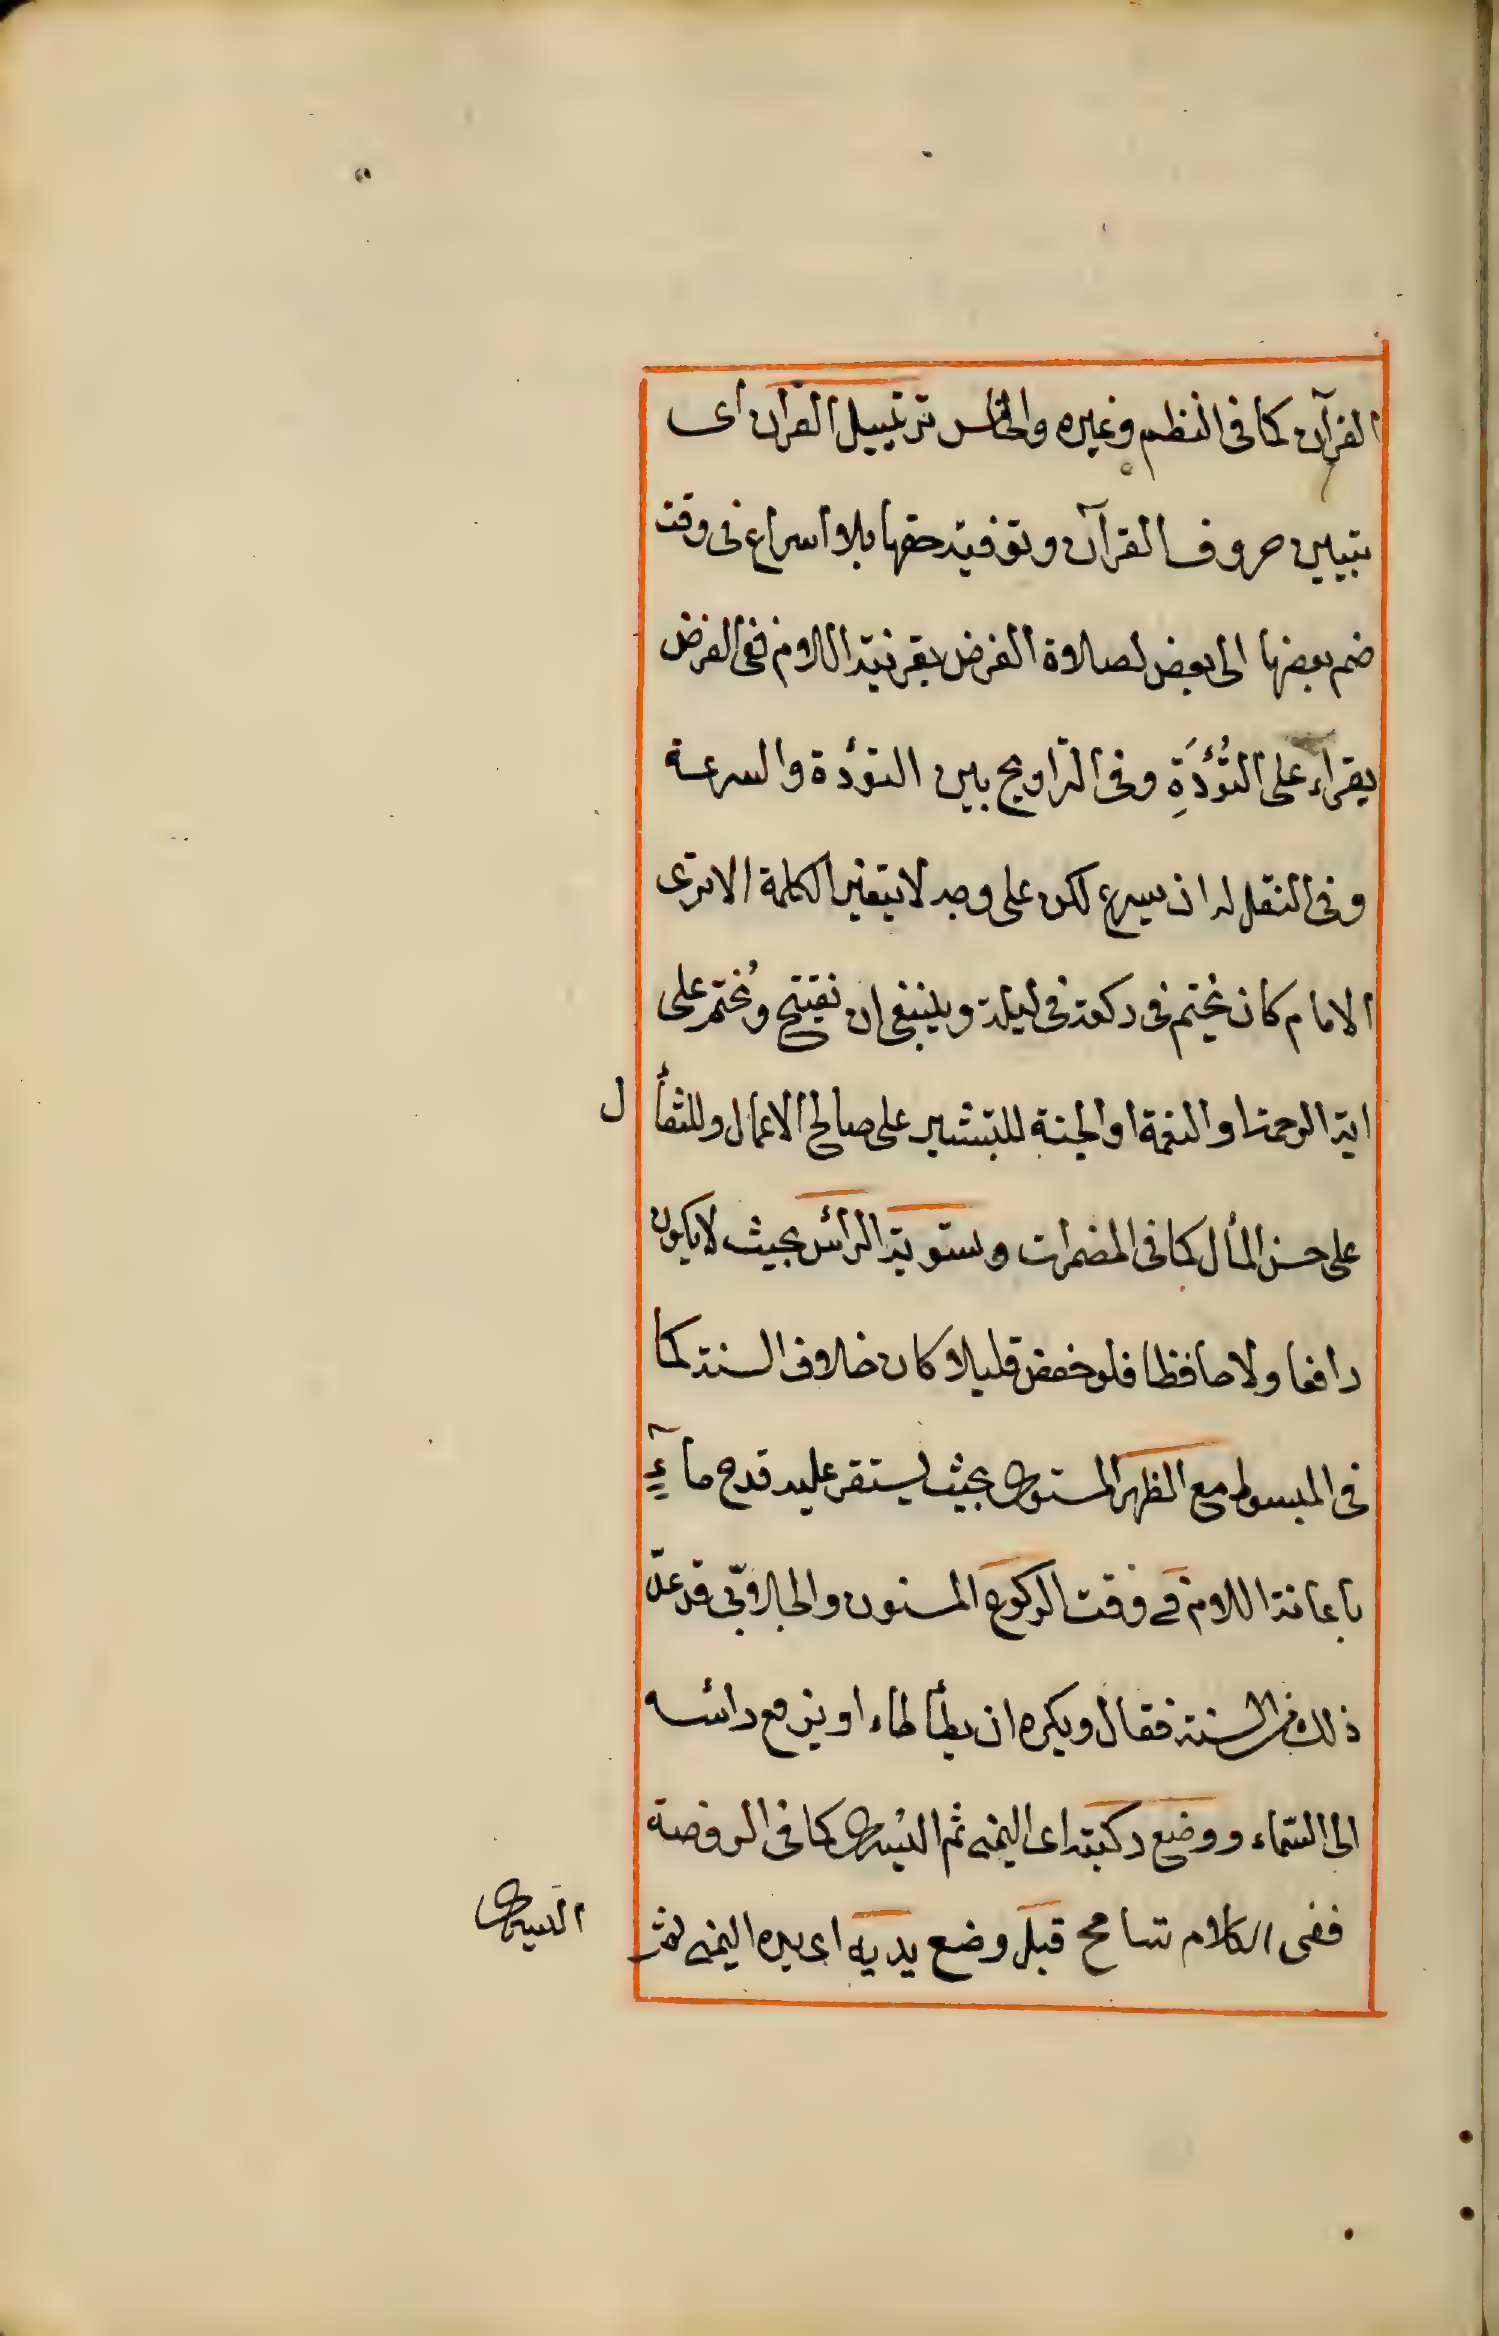 القرآن كما فى النظم وغيره والخامس ترتييل القرآن اى
تبيين حروف القرآن وتوفية حقها بلا اسراع فى وقت
ضم بعضها الى بعض لصلاوة الفرض بقرنية اللام ففى الفرض
يقراء على التُؤَدَةِ وفى التراويح بين التؤدة والسرعة
وفى النفل له ان يسرع لكن على وجه لا يتغير الكلمة الا ترى
الامام كان يختم فى ركعة فى ليلة وينبغى ان نفتتح ونُختم على
اية الرحمة او النعمة او الجنة للتبشير على صالح الاعمال وللتفأل
على حسن المأل كما فى المضمرات وستوية الرأس بحيث لا يكون
رافعا ولا حافظا فلو خفض قليلا كان خلاف السنة كما
فى المبسوط مع الظهر المستوى بحيث يستقر عليه قدح مآءٍ
باعانة اللام فى وقت الركوع المسنون والجلابّى قد عدّ
ذلك من السنة فقال ويكره ان يطأطاء او يرفع رائسه
الى السّماء ووضع ركبته اى اليمنى ثم اليُسرى كما فى الروضة
ففى الكلام تسامح قبل وضع يديه اى يده اليمنى ثم
اليسرى